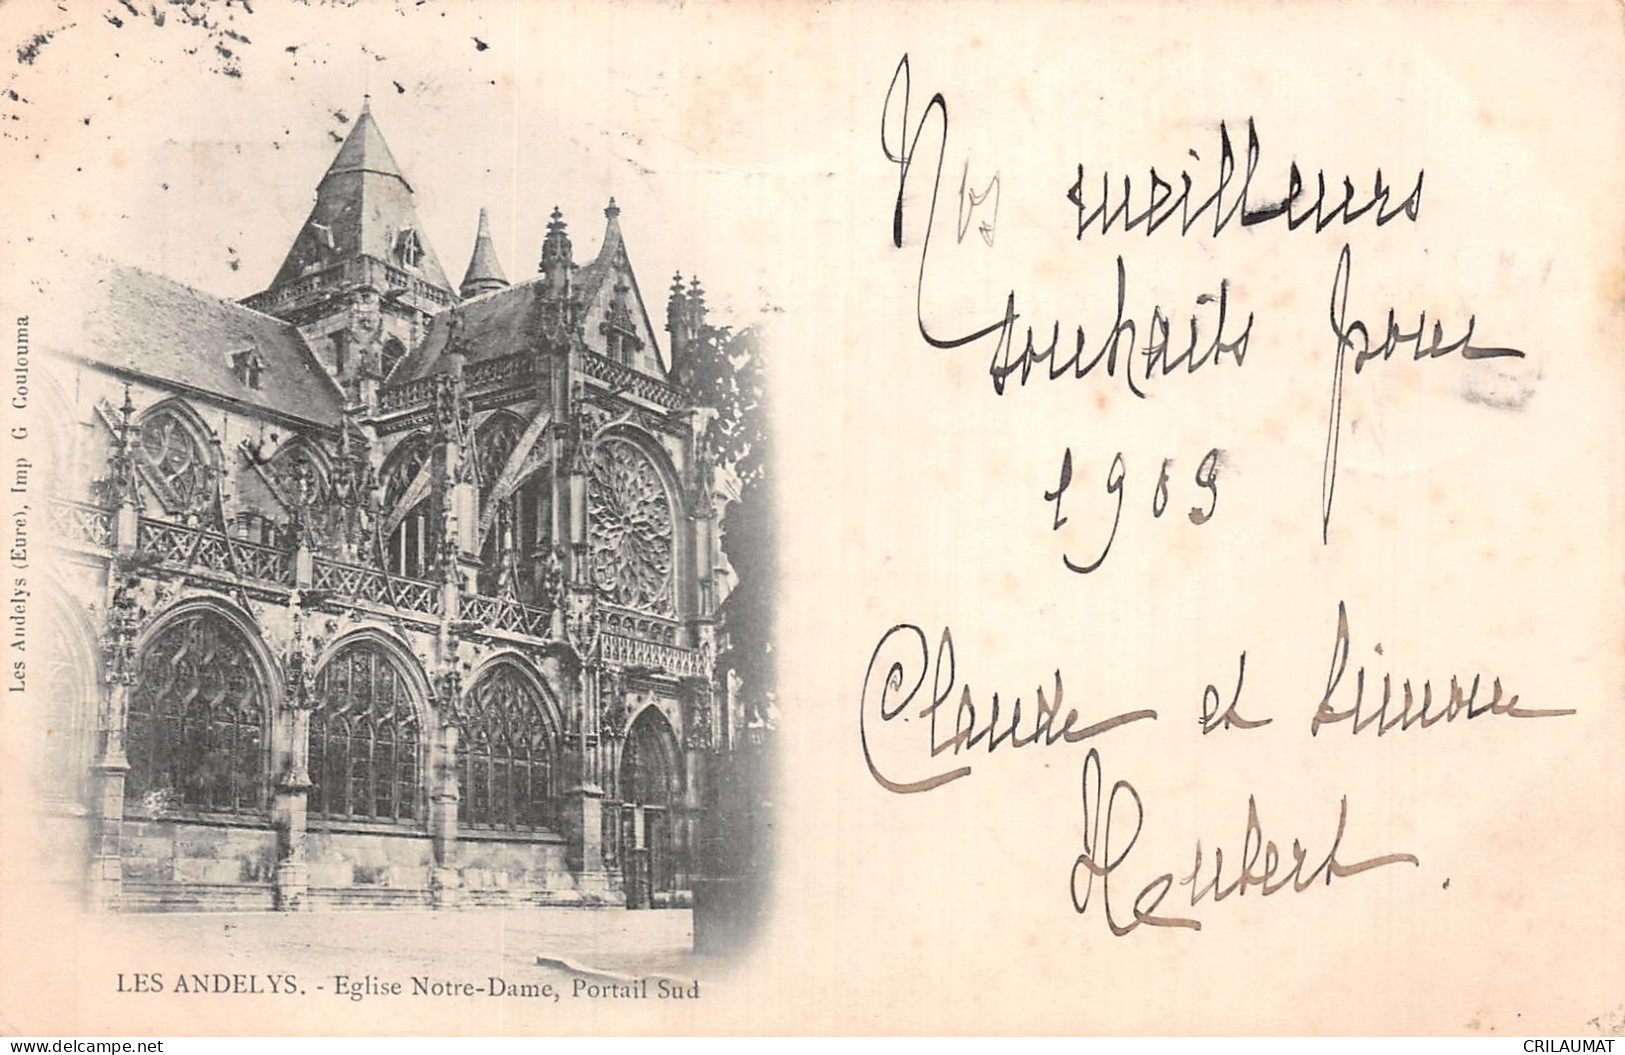 Les Andelys (Eure), Imp G Coutouma
LES ANDELYS. - Eglise Notre-Dame, Portail Sud
Nos meilleurs
souhaits pour
1909
Claude et Simone
Hubert.
https://www.delcampe.net
CRILAUMAT